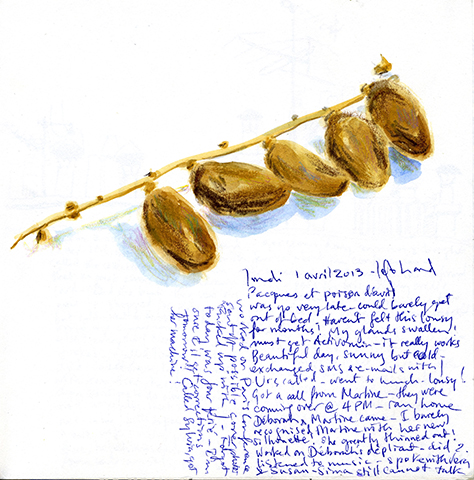 lundi 1 avril 2013 - left hand
Pacques et poisson d'avril
was up very late could barely get
out of bed. Haven't felt this lousy
for months! My glands swollen!
must get Activomin - it really works
Beautiful day, sunny but cold -
exchanged sms & e-mails with
Urs called - went to lunch - lousy!
Got a call from Martine - they were
coming over @ 4 PM - ran home
Deborah & Martine came - I barely
recognised Martine with her new
silhouette. She greatly thinned out!
worked on Deborah's depliant - did 2
listened to music - spoke with
& Susan - Sima still cannot talk
worked on Paris Conference
sent off possible
up with
today was
one & got corrections
tomorrow. Called Sylvia, got
her machine!